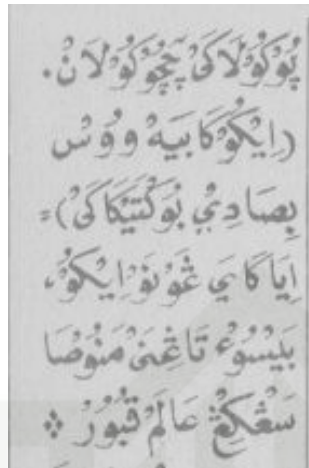 پُوْكُوْلَاكَىْ چَچُوْكُوْلَانْ.
(اِيْكُوْ كَابَيَهْ وُوْس
بِصَا دِيْ بُوَكْتَيْكَاكَىْ)=
اِيَا كَايَ غَوْنَوْ اِيْكُوْ،
بَيْسُوْءْ تَاغِنَىْ مَنُوْصَا
سَڠْكِڠْ عَالَمْ قُبُوْرْ ❖